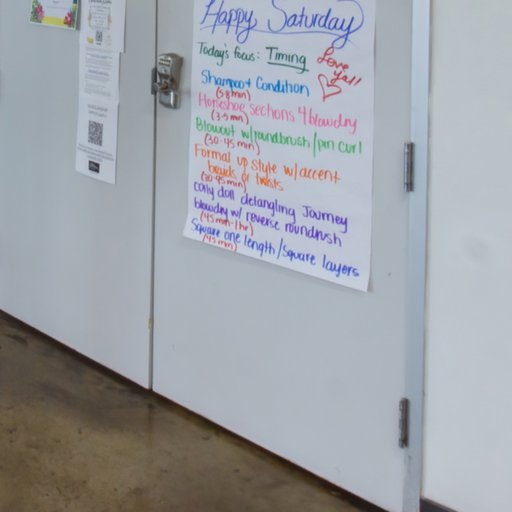 Happy Saturday
Today's focus: Timing
Love
Y'all
Shampoo + Condition
(5-8 min)
Horseshoe sections 4 blowdry
(3-5 min)
Blowout w/roundbrush/pin curl
(30-45 min)
Formal up style w/accent
braids or twists
(30-45 min)
Coily doll detangling Journey
blowdry w/ reverse roundrush
(45 min-1 hr)
Square one length/square layers
(45 min)